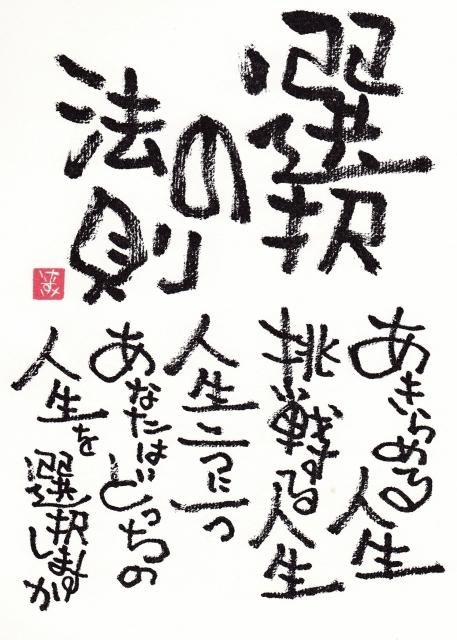 選択
の
法則
あきらめる人生
挑戦する人生
人生二つに一つ
あなたはどっちの
人生を選択しますか